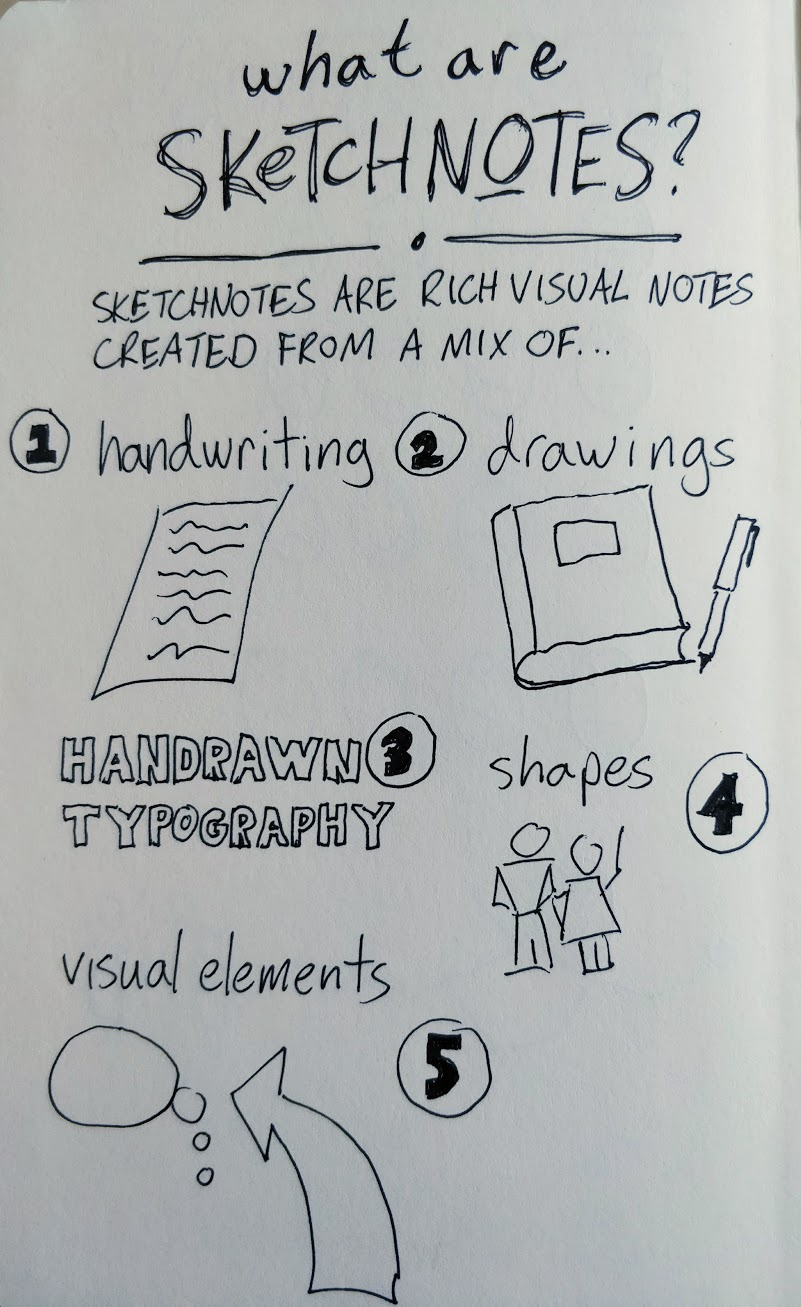 what are
SKeTCHNOTES?
SKETCHNOTES ARE RICH VISUAL NOTES
CREATED FROM A MIX OF...
1 handwriting
2 drawings
HANDRAWN 3
TYPOGRAPHY
shapes 4
visual elements
5